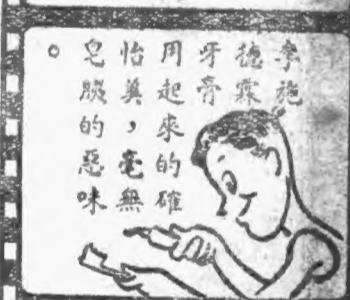 李施
德霖
牙膏
用起來的確
怡爽，毫無
皂胰的惡味
。